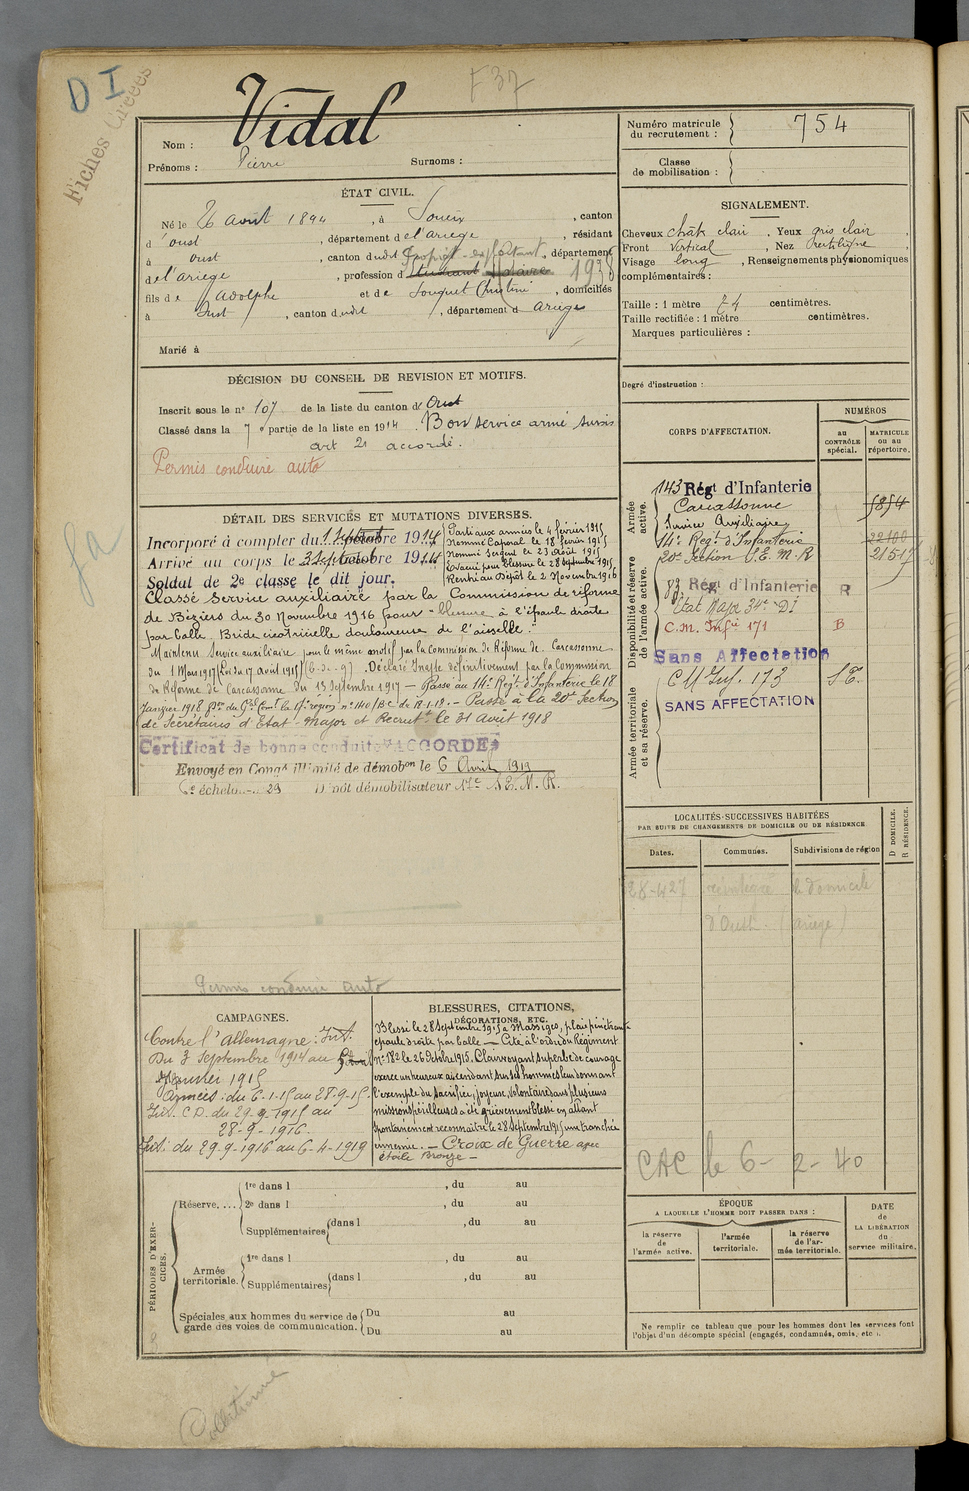 D I
Fiches
F 37
Nom : Vidal
Prénoms : Pierre Surnoms :
ÉTAT CIVIL.
Né le 26 avril 1894, à Soueix, canton
d'oust, département de l'ariege, résidant
à oust, canton dudit, département
de l'ariege, profession d 1938
fils de Adolphe et de Souquet Christine, domiciliés
à Oust, canton dudit, département d Ariège
Marié à
DÉCISION DU CONSEIL DE REVISION ET MOTIFS.
Inscrit sous le n° 107 de la liste du canton d'Oust
Classé dans la 7e partie de la liste en 1914. Bon service armé sursis
art 21 accordé.
Permis conduire auto
DÉTAIL DES SERVICES ET MUTATIONS DIVERSES.
Incorporé à compter du 1 Sept 1914
Arrivé au corps le 3 Septembre 1914
Soldat de 2e classe le dit jour.
Parti aux armées le 4 février 1915
Nommé Caporal le 18 février 1915
Nommé Sergent le 23 Août 1915
Evacué pour blessure le 28 septembre 1915
Rentré au Dépôt le 2 Novembre 1916
Classé Service auxiliaire par la Commission de réforme
de Béziers du 30 Novembre 1916 pour "blessure à l'épaule droite
par balle. Bride cicatricielle douloureuse de l'aisselle."
Maintenu Service auxiliaire pour le même motif par la Commission de Réforme de Carcassonne
du 1 Mars 1917 (Loi du 17 août 1915) Déclaré Inapte définitivement par la Commission
de Réforme de Carcassonne du 13 Septembre 1917 — Passé au 14e Regt d'Infanterie le 18
Janvier 1918 du Gal Comt la 17e région n° 140/BC du 18-1-18. — Passé à la 20e Section
de Secrétaires d'Etat-Major et Recrutt le 31 août 1918
Certificat de bonne conduite "ACCORDÉ"
Envoyé en Congé illimité de démobon le 6 Avril 1919
6e échelon n° 29 Dépôt démobilisateur 17e S.E.M.R.
Permis conduire auto
CAMPAGNES.
Contre l'Allemagne : Int.
Du 3 Septembre 1914 au 5
Janvier 1915
Armées : du 6-1-15 au 28-9-15
Int. C.D. du 29-9-1915 au
28-9-1916.
Int. du 29-9-1916 au 6-4-1919
BLESSURES, CITATIONS,
DÉCORATIONS, ETC.
Blessé le 28 Septembre 1915 à Massiges, plaie pénétrante
épaule droite par balle — Cité à l'ordre du Régiment
n° 182 le 26 Octobre 1915. Clairvoyant superbe de courage
exerce un heureux ascendant sur ses hommes leur donnant
l'exemple du sacrifice, joyeuse, volontaire dans plusieurs
missions périlleuses a été grièvement blessé en allant
spontanément reconnaître le 28 Septembre 1915 une tranchée
ennemie. — Croix de Guerre avec
étoile Bronze —
PÉRIODES D'EXERCICES.
Réserve, ... 1re dans l , du au
2e dans l , du au
Supplémentaires dans l , du au
au
Armée territoriale. 1re dans l , du au
Supplémentaires dans l , du au
Spéciales aux hommes du service de garde des voies de communication. Du au
Du au
Numéro matricule du recrutement : 754
Classe de mobilisation :
SIGNALEMENT.
Cheveux chât clair. Yeux gris clair,
Front vertical, Nez Rectiligne,
Visage long, Renseignements physionomiques
complémentaires :
Taille : 1 mètre 74 centimètres.
Taille rectifiée : 1 mètre centimètres.
Marques particulières :
Degré d'instruction :
CORPS D'AFFECTATION.
NUMÉROS
au CONTRÔLE spécial.
MATRICULE ou au répertoire.
Armée active.
143 Régt d'Infanterie
Carcassonne 5854
Service Auxiliaire
14e Regt d'Infanterie 22100
20e Section S.E.M.R 21517
Disponibilité et réserve de l'armée active.
83 Régt d'Infanterie R
Etat Major 34e DI
C.M. Infie 171 B
Sans Affectation
Armée territoriale et sa réserve.
CM Inf. 173 S.E.
SANS AFFECTATION
LOCALITÉS SUCCESSIVES HABITÉES
PAR SUITE DE CHANGEMENTS DE DOMICILE OU DE RÉSIDENCE
Dates. Communes. Subdivisions de région
D DOMICILE.
R RÉSIDENCE.
28-4 27 réintégré le domicile
d'Oust. (ariege)
CAC le 6-2-40
ÉPOQUE
A LAQUELLE L'HOMME DOIT PASSER DANS :
la réserve de l'armée active.
l'armée territoriale.
la réserve de l'armée territoriale.
DATE de LA LIBÉRATION du service militaire.
Ne remplir ce tableau que pour les hommes dont les services font
l'objet d'un décompte spécial (engagés, condamnés, omis, etc.).
Collationné